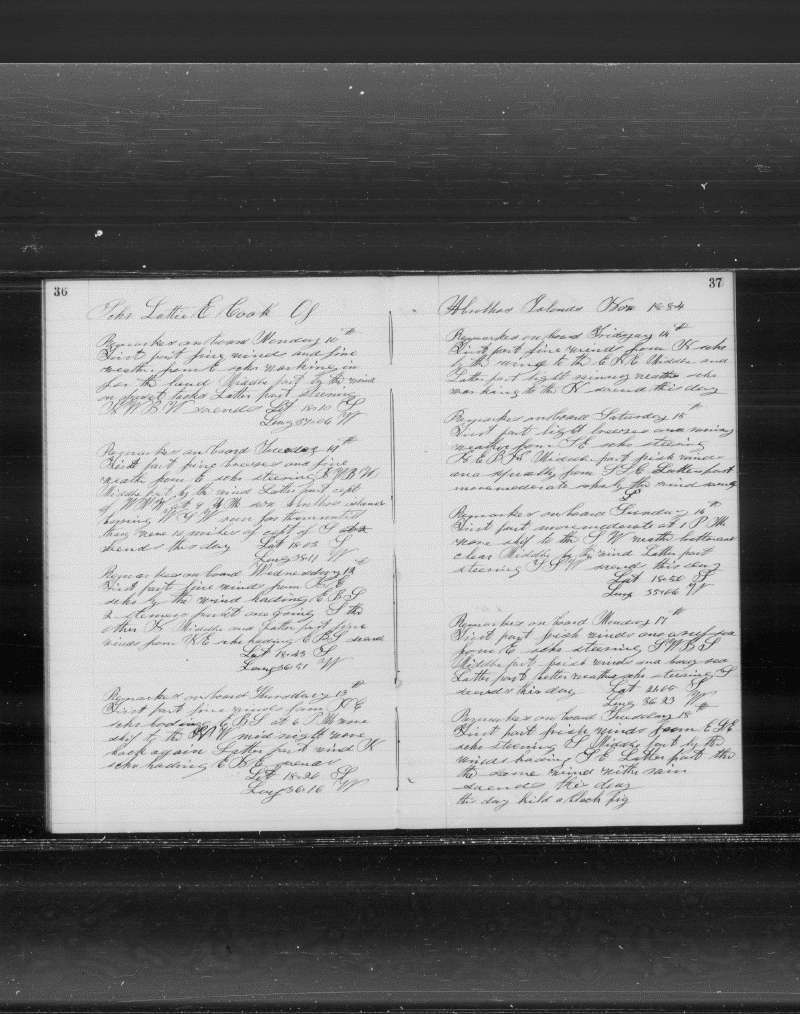 36
Schr Lottie E Cook Of
Remarkes on board Monday 10th
First part fine winds and fine
weather from E schr working in
for the land Middle part by the wind
on offset tacks Latter part steering
N W B W so ends Lat 18-10 S
Long 37-06 W
Remarkes on board Tuesday 11th
First part fine breeses and fine
weath from E schr steering
Middle part by the wind Latter part
of
bearing W S W
than were 10 miles of S
so ends this day Lat 18-13 S
Long 38-11 W
Remarkes on board Wednesday 12
First part fine winds from N E
schr by the wind heading E B S
2 stemers past one going S the
other N Middle and Latter part fine
winds from N E schr heading E B S so ends
Lat 18-43 S
Long 36-51 W
Remarkes on board Thursday 13th
First part fine winds from N E
schr heading E B S at 6 P M wore
ship to the N W mid night wore
back again Latter part wind N
schr heading E B E so ends
Lat 18-26 S
Long 36-16 W
37
Abrolhos Islands Nov 1884
Remarkes on board Friday 14th
First part fine wind from N schr
by the wind to the E N E Middle and
Latter part light rainy weather schr
working to the N so end this day
Remarkes on board Saturday 15th
First part light breeses and rainy
weather from S E schr steering
N E B N Middle part fresh winds
and squally from S S E Latter part
more moderate schr by the wind
S
Remarkes on board Sunday 16th
First part more moderate at 1 P M
wore ship to the S W weather
clear Middle by the wind Latter part
steering S S W so end this day
Lat 18-50 S
Long 35-06 W
Remarkes on board Monday 17th
First part fresh winds and a ruf sea
from E schr steering S W B S
Middle part fresh winds and heavy sea
Latter part better weather schr steering S
so ends this day Lat 21-00 S
Long 36 23 W
Remarkes on board Tuesday 18th
First part fresh winds from E S E
schr steering S Middle part by the
wind heading S E Latter part the
the same wind with rain
so ends the day
this day kild a black pig